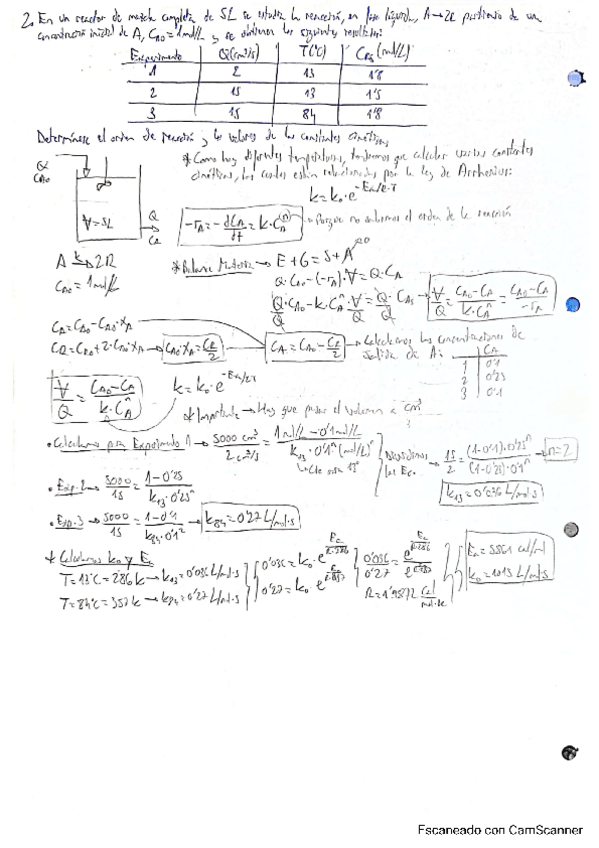 2. En un reactor de mezcla completa de 5L se estudia la reacción, en fase líquida, A→2R partiendo de una
concentración inicial de A, CA0 = 1mol/L y se obtienen los siguientes resultados:
Experimento Q(cm³/s) T(ºC) CRs (mol/L)
1 2 13 1'8
2 15 13 1'5
3 15 84 1'8
Determínese el orden de reacción y los valores de las constantes cinéticas
* Como hay diferentes temperaturas, tendremos que calcular varias constantes
cinéticas, las cuales están relacionadas por la ley de Arrhenius:
k = k₀·e^(-Ea/R·T)
Q
CA0
V=5L
Q
CR
-rA = -dCA/dt = k·CA^(n) → Porque no sabemos el orden de la reacción
A →k 2R
CA0 = 1mol/L
* Balance Materia → E+G = S+A
Q·CA0 - (-rA)·V = Q·CA
Q/Q·CA0 - k·CA^n·V/Q = Q/Q CAs → V/Q = (CA0-CA)/(k·CA^n) = (CA0-CA)/(-rA)
CA = CA0 - CA0·XA
CR = CR0 + 2·CA0·XA → CA0·XA = CR/2
CA = CA0 - CR/2 → Calculamos las concentraciones de
salida de A:
CA
1 0'1
2 0'25
3 0'1
V/Q = (CA0-CA)/(k·CA^n)
k = k₀·e^(-Ea/RT)
* Importante → Hay que pasar el volumen a cm³
• Calculamos para Experimento 1 → 5000 cm³/2 cm³/s = (1mol/L - 0'1mol/L)/(k13·0'1^n (mol/L)^n)
Dividimos
las Ec. → 15/2 = ((1-0'1)·0'25^n)/((1-0'25)·0'1^n) → n=2
k13 = 0'036 L/mol·s
• Exp. 2 → 5000/15 = (1-0'25)/(k13·0'25^n)
• Exp. 3 → 5000/15 = (1-0'1)/(k84·0'1²) → k84 = 0'27 L/mol·s
* Calculamos k₀ y Ea
T=13ºC = 286k → k13 = 0'036 L/mol·s
T=84ºC = 357k → k84 = 0'27 L/mol·s
0'036 = k₀·e^(Ea/R·286)
0'27 = k₀ e^(Ea/R·357)
0'036/0'27 = e^(Ea/R·286)/e^(Ea/R·357)
R = 1'9872 cal/mol·k
Ea = 5561 cal/mol
Escaneado con CamScanner